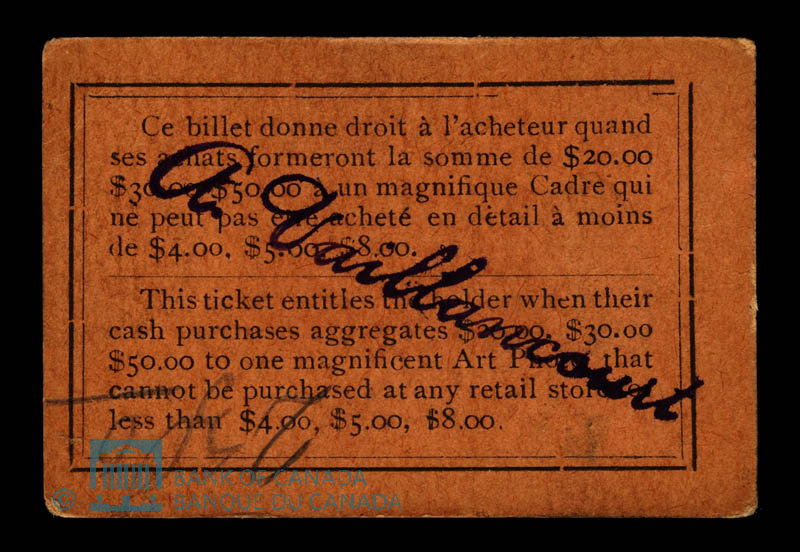 Ce billet donne droit à l'acheteur quand
ses achats formeront la somme de $20.00
$30.00, $50.00 à un magnifique Cadre qui
ne peut pas être acheté en détail à moins
de $4.00, $5.00, $8.00.
This ticket entitles the holder when their
cash purchases aggregates $20.00, $30.00
$50.00 to one magnificent Art that
cannot be purchased at any retail store
less than $4.00, $5.00, $8.00.
A. Vaillancourt
© BANK OF CANADA
BANQUE DU CANADA